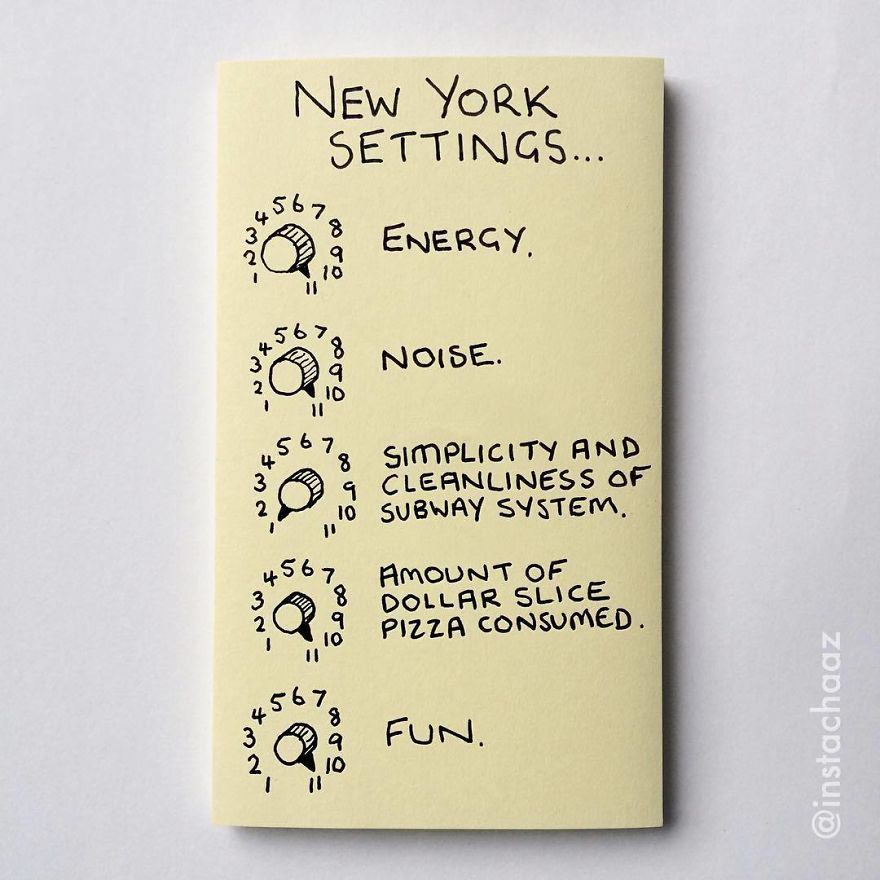 NEW YORK
SETTINGS...
1 2 3 4 5 6 7 8 9 10 11
ENERGY.
1 2 3 4 5 6 7 8 9 10 11
NOISE.
1 2 3 4 5 6 7 8 9 10 11
SIMPLICITY AND
CLEANLINESS OF
SUBWAY SYSTEM.
1 2 3 4 5 6 7 8 9 10 11
AMOUNT OF
DOLLAR SLICE
PIZZA CONSUMED.
1 2 3 4 5 6 7 8 9 10 11
FUN.
@instachaaz